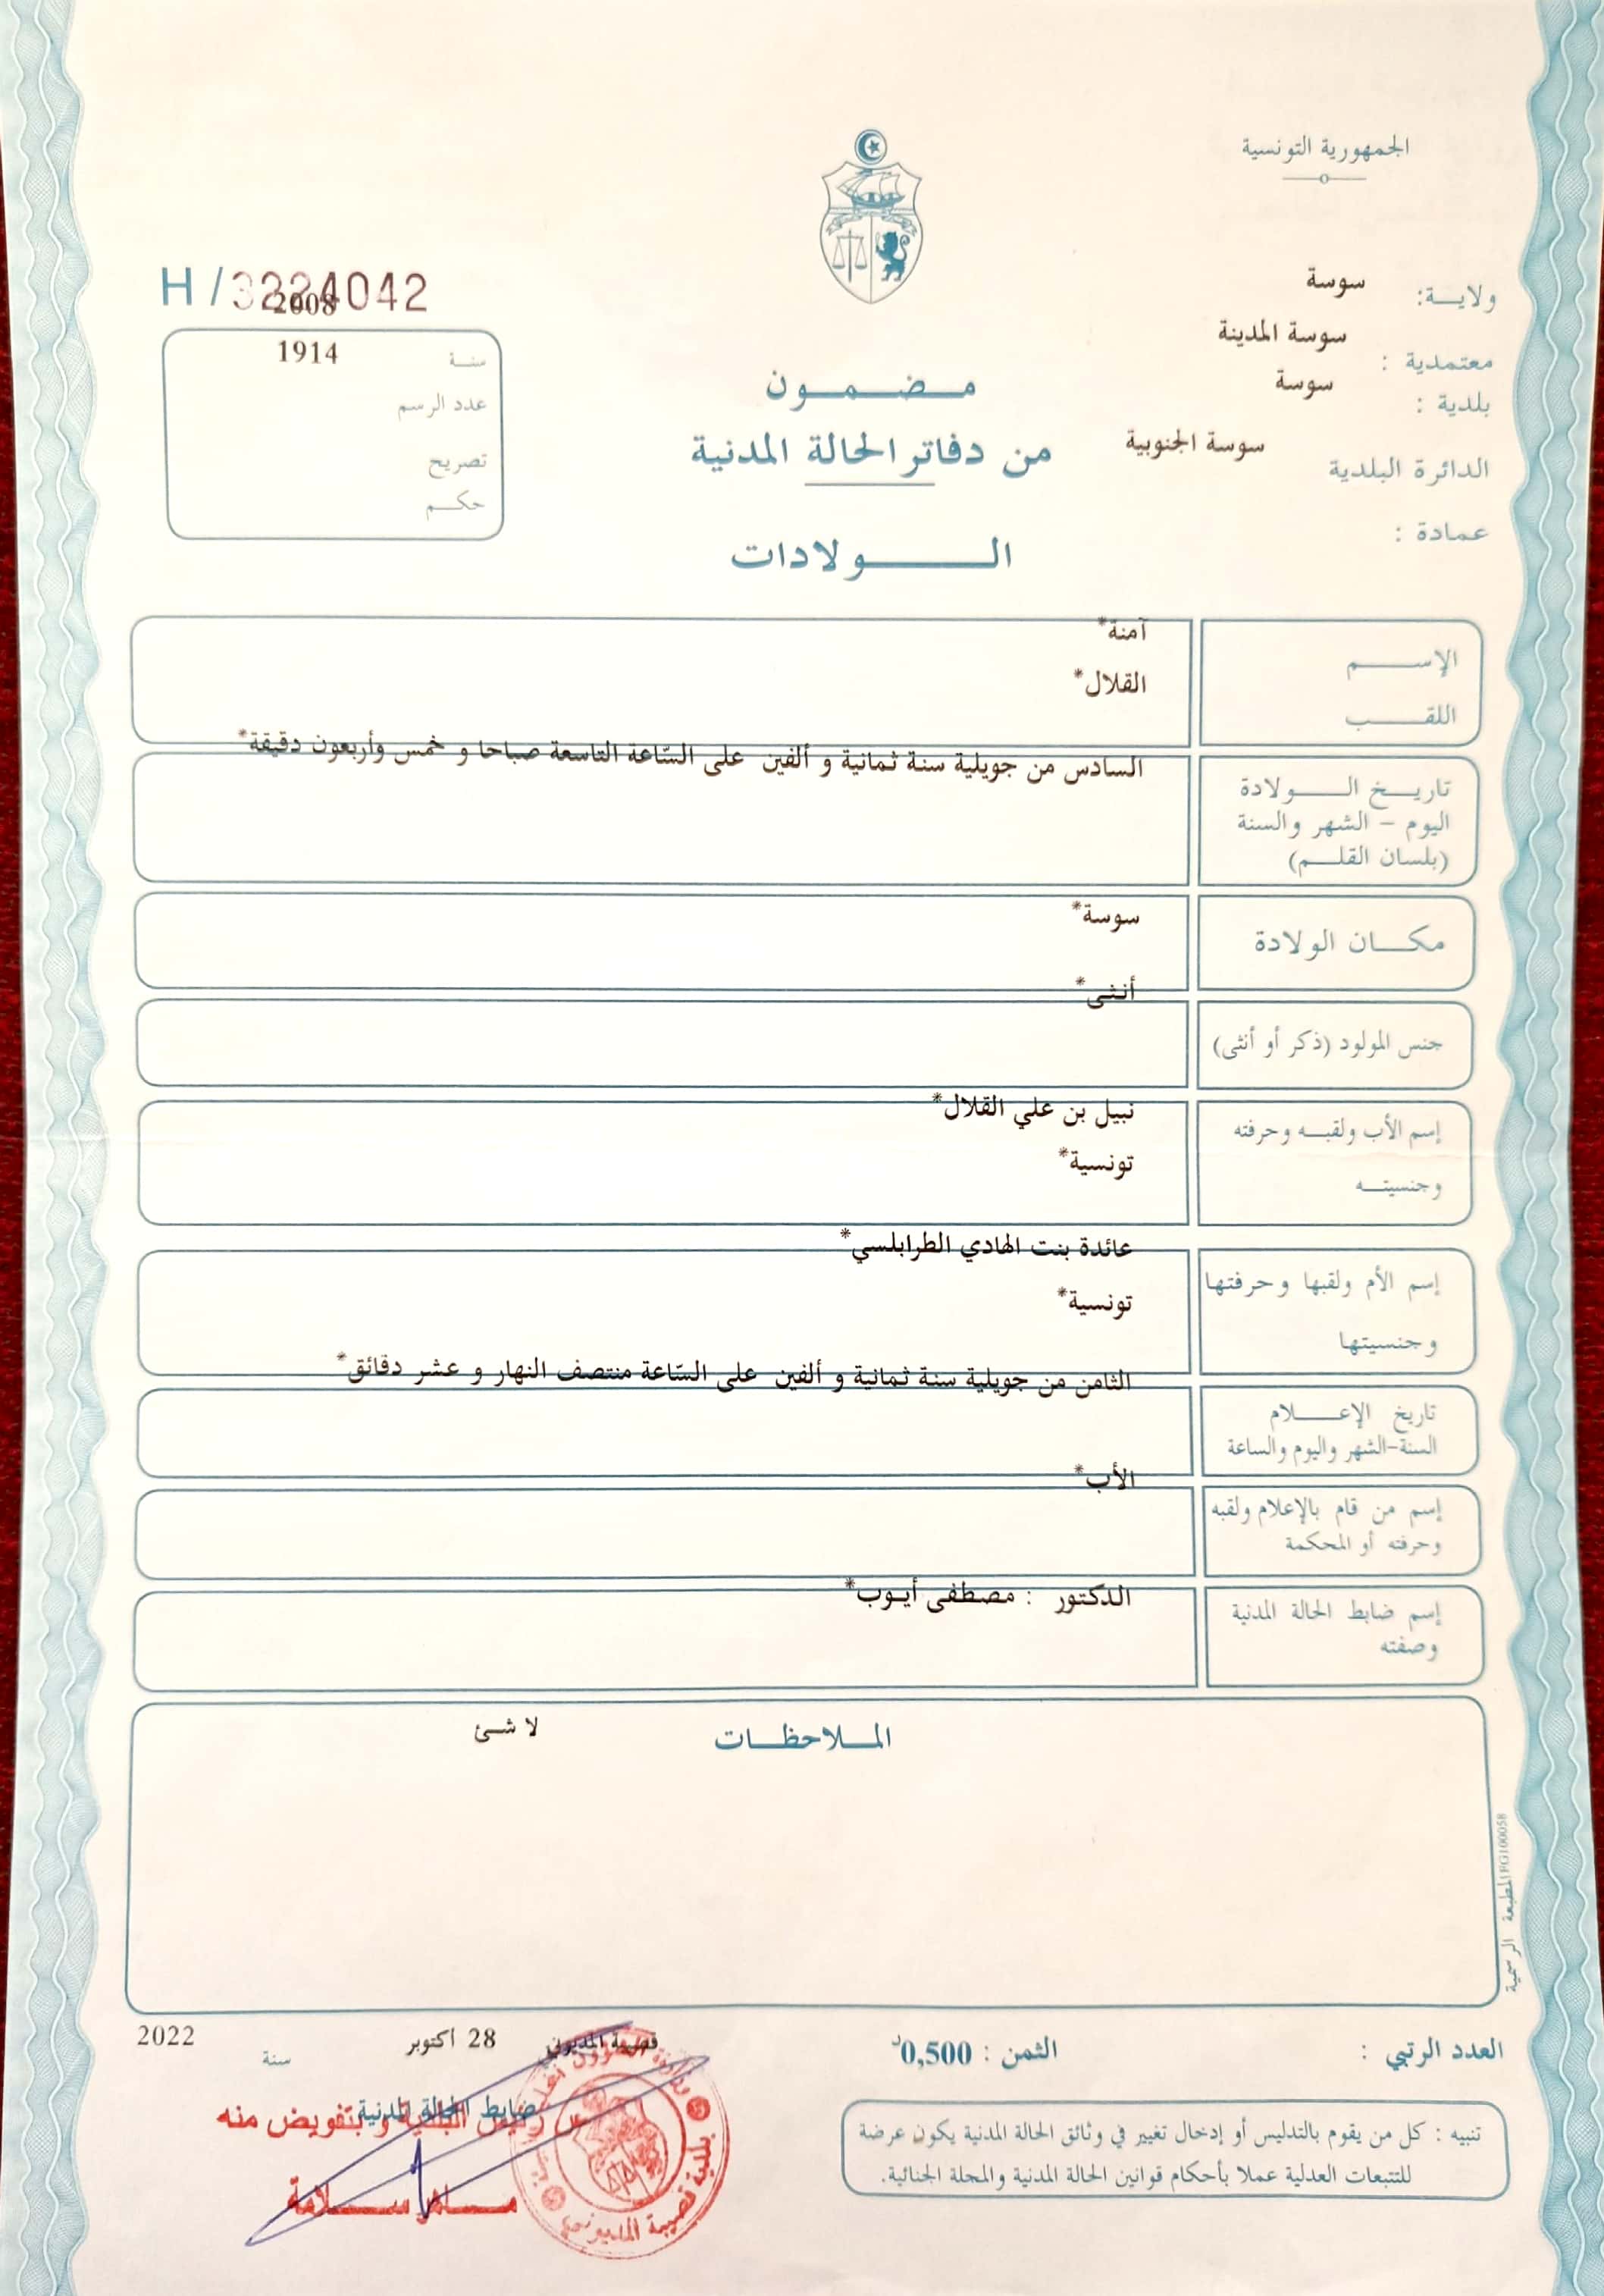 الجمهورية التونسية
ولاية: سوسة
معتمدية : سوسة المدينة
بلدية : سوسة
الدائرة البلدية سوسة الجنوبية
عمادة :
مضمون
من دفاتر الحالة المدنية
الولادات
H/3224042
2008
سنة 1914
عدد الرسم
تصريح
حكم
الإسم آمنة*
اللقب القلال*
تاريخ الولادة السادس من جويلية سنة ثمانية و ألفين على السّاعة التاسعة صباحا و خمس وأربعون دقيقة*
اليوم - الشهر والسنة
(بلسان القلم)
مكان الولادة سوسة*
جنس المولود (ذكر أو أنثى) أنثى*
إسم الأب ولقبه وحرفته نبيل بن علي القلال*
وجنسيته تونسية*
إسم الأم ولقبها وحرفتها عائدة بنت الهادي الطرابلسي*
وجنسيتها تونسية*
تاريخ الإعلام الثامن من جويلية سنة ثمانية و ألفين على السّاعة منتصف النهار و عشر دقائق*
السنة-الشهر واليوم والساعة
إسم من قام بالإعلام ولقبه الأب*
وحرفته أو المحكمة
إسم ضابط الحالة المدنية الدكتور : مصطفى أيوب*
وصفته
الملاحظات لا شئ
المطبعة الرسمية FG100058
العدد الرتبي :
الثمن : 0,500د
قصيبة المديوني 28 اكتوبر سنة 2022
ضابط الحالة المدنية
عن رئيس البلدية و بتفويض منه
ماهر سلامة
بلدية قصيبة المديوني
تنبيه : كل من يقوم بالتدليس أو إدخال تغيير في وثائق الحالة المدنية يكون عرضة
للتتبعات العدلية عملا بأحكام قوانين الحالة المدنية والمجلة الجنائية.